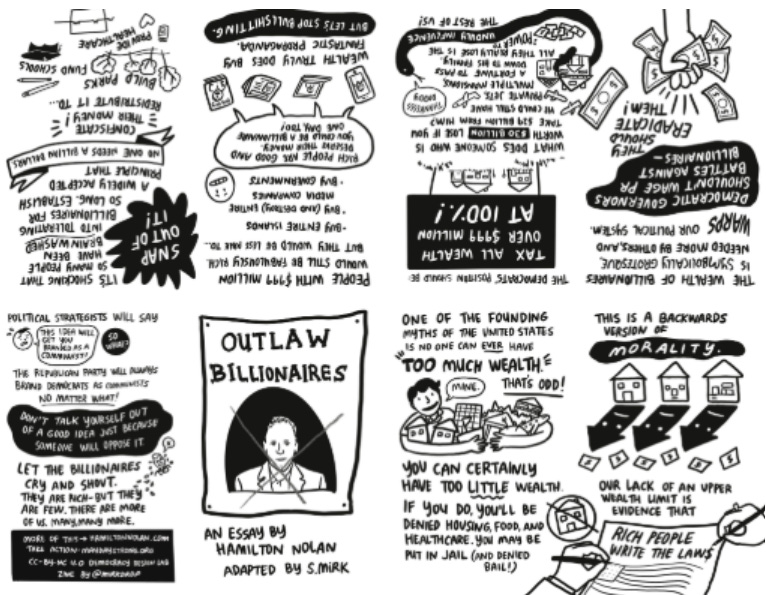 OUTLAW
BILLIONAIRES
AN ESSAY BY
HAMILTON NOLAN
ADAPTED BY S.MIRK
ONE OF THE FOUNDING
MYTHS OF THE UNITED STATES
IS NO ONE CAN EVER HAVE
TOO MUCH WEALTH.
THAT'S ODD!
MINE.
YOU CAN CERTAINLY
HAVE TOO LITTLE WEALTH.
IF YOU DO, YOU'LL BE
DENIED HOUSING, FOOD, AND
HEALTHCARE. YOU MAY BE
PUT IN JAIL (AND DENIED
BAIL!)
THIS IS A BACKWARDS
VERSION OF
MORALITY.
OUR LACK OF AN UPPER
WEALTH LIMIT IS
EVIDENCE THAT
RICH PEOPLE
WRITE THE LAWS
THE WEALTH OF BILLIONAIRES
IS SYMBOLICALLY GROTESQUE,
NEEDED MORE BY OTHERS, AND
WARPS OUR POLITICAL SYSTEM.
DEMOCRATIC GOVERNORS
SHOULDN'T WAGE PR
BATTLES AGAINST
BILLIONAIRES—
THEY
SHOULD
ERADICATE
THEM!
THE DEMOCRATS' POSITION SHOULD BE:
TAX ALL WEALTH
OVER $999 MILLION
AT 100%!
WHAT DOES SOMEONE WHO IS
WORTH $30 BILLION LOSE IF YOU
TAKE $29 BILLION FROM HIM?
HE COULD STILL HAVE
PRIVATE JETS,
MULTIPLE MANSIONS,
A FORTUNE TO PASS
DOWN TO HIS FAMILY.
ALL THEY REALLY LOSE IS THE
POWER TO
UNDULY INFLUENCE
THE REST OF US!
DADDY
PEOPLE WITH $999 MILLION
WOULD STILL BE FABULOUSLY RICH,
BUT THEY WOULD BE LESS ABLE TO...
-BUY ENTIRE ISLANDS
-BUY (AND DESTROY) ENTIRE
MEDIA COMPANIES
-BUY GOVERNMENTS
RICH PEOPLE ARE GOOD AND
DESERVE THEIR MONEY.
YOU COULD BE A BILLIONAIRE
ONE DAY, TOO!
WEALTH TRULY DOES BUY
FANTASTIC PROPAGANDA.
BUT LET'S STOP BULLSHITTING.
IT'S SHOCKING THAT
SO MANY PEOPLE
HAVE BEEN
BRAINWASHED
INTO TOLERATING
BILLIONAIRES FOR
SO LONG. ESTABLISH
A WIDELY ACCEPTED
PRINCIPLE THAT
SNAP
OUT OF
IT!
NO ONE NEEDS A BILLION DOLLARS
CONFISCATE
THEIR MONEY!
REDISTRIBUTE IT TO...
BUILD PARKS
FUND SCHOOLS
PROVIDE
HEALTHCARE
POLITICAL STRATEGISTS WILL SAY
THIS IDEA WILL
GET YOU
BRANDED AS A
COMMUNIST!
SO
WHAT?
THE REPUBLICAN PARTY WILL ALWAYS
BRAND DEMOCRATS AS COMMUNISTS
NO MATTER WHAT!
DON'T TALK YOURSELF OUT
OF A GOOD IDEA JUST BECAUSE
SOMEONE WILL OPPOSE IT.
LET THE BILLIONAIRES
CRY AND SHOUT.
THEY ARE RICH-BUT THEY
ARE FEW. THERE ARE MORE
OF US. MANY, MANY MORE.
MORE OF THIS → HAMILTONNOLAN.COM
TAKE ACTION: MAYDAYSTRONG.ORG
CC-BY-NC 4.0 DEMOCRACY DESIGN LAB
ZINE BY @MIRKDROP